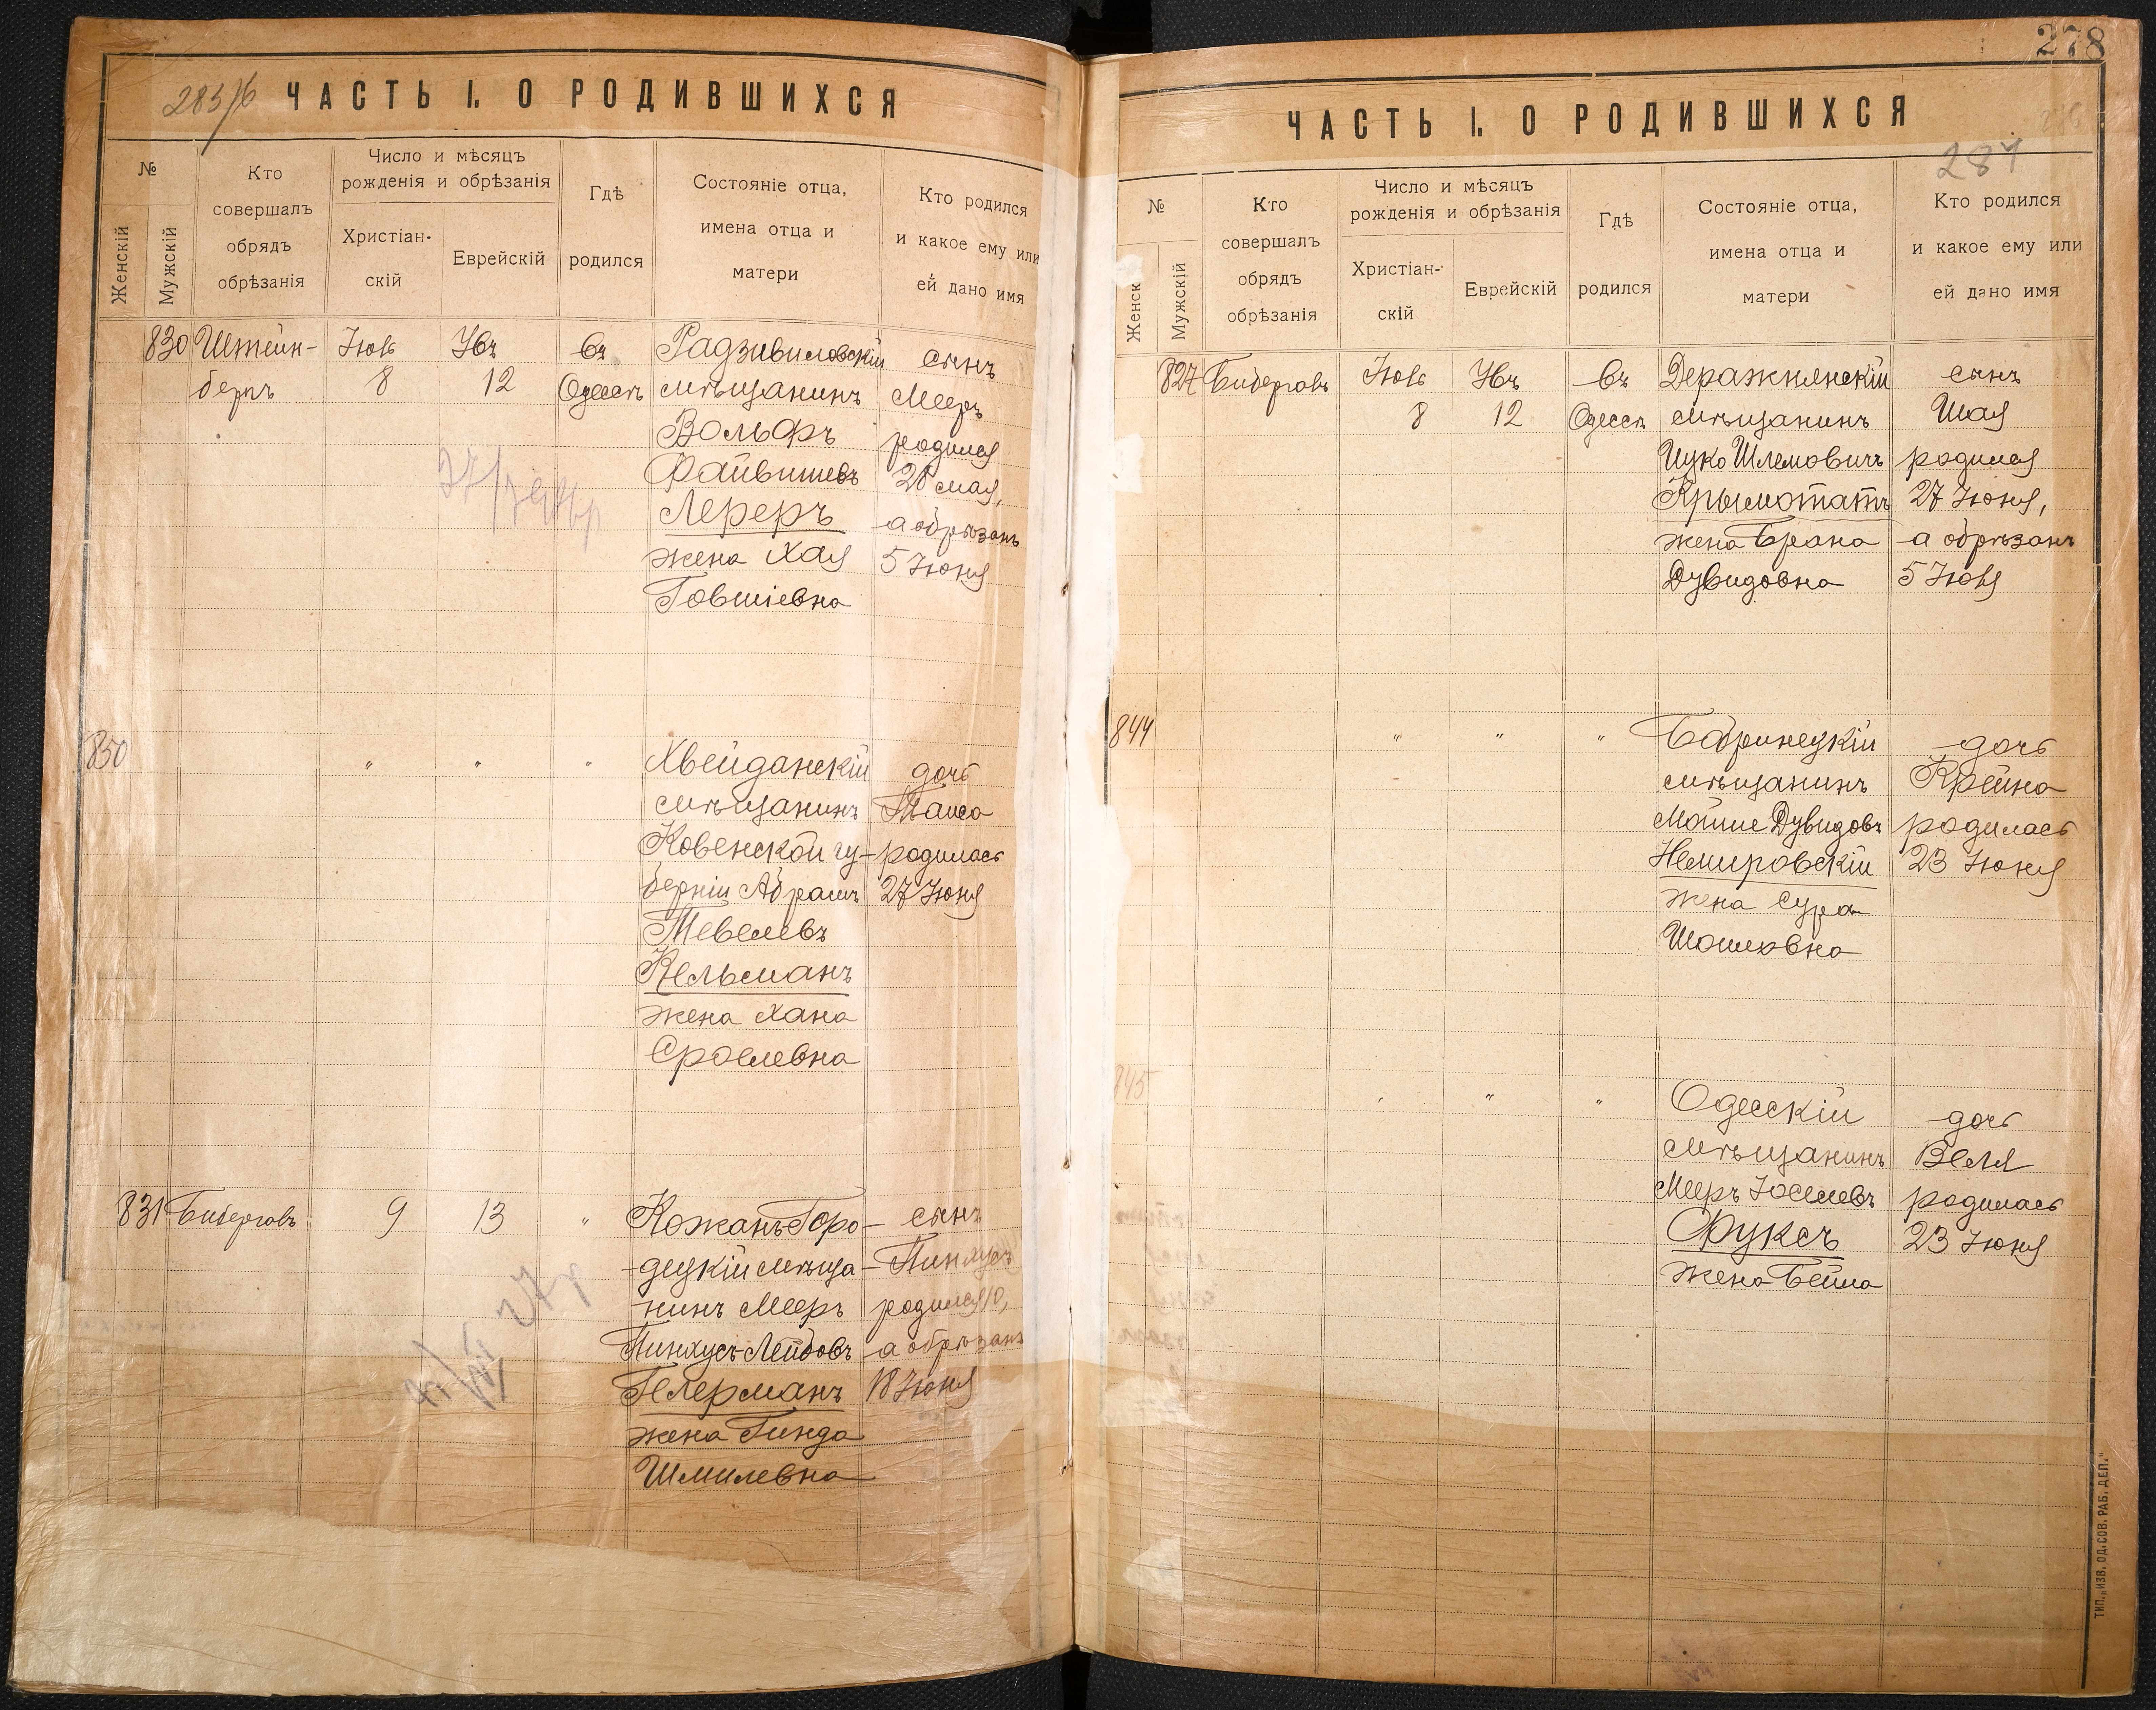 283/6
ЧАСТЬ I. О РОДИВШИХСЯ
№
Женскій
Мужскій
Кто
совершалъ
обрядъ
обрѣзанія
Число и мѣсяцъ
рожденія и обрѣзанія
Христіан-
скій
Еврейскій
Гдѣ
родился
Состояніе отца,
имена отца и
матери
Кто родился
и какое ему или
ей дано имя
830
Штейн-
бергъ
Іюль
8
12
Въ
Одессѣ
Радзивиловскій
мѣщанинъ
Вольфъ
Файвишевъ
Лереръ
жена Хая
Говшіевна
сынъ
Мееръ
родился
28 мая,
а обрѣзанъ
5 Іюня
850
"
"
"
Хвейданскій
мѣщанинъ
Ковенской гу-
берніи Абрамъ
Тевелевъ
Кельманъ
жена Хана
Сролевна
дочь
родилась
27 Іюня
831
Бибергалъ
9
13
"
Кожанъ-Горо-
децкій мѣща-
нинъ Мееръ
Пинхусъ-Лейбовъ
Гелерманъ
жена Гинда
Шмилевна
сынъ
Пинхусъ
родился 10,
а обрѣзанъ
18 Іюня
278
ЧАСТЬ I. О РОДИВШИХСЯ
№
Женск
Мужскій
Кто
совершалъ
обрядъ
обрѣзанія
Число и мѣсяцъ
рожденія и обрѣзанія
Христіан-
скій
Еврейскій
Гдѣ
родился
Состояніе отца,
имена отца и
матери
Кто родился
и какое ему или
ей дано имя
827
Бибергалъ
Іюль
8
12
Въ
Одессѣ
Деражнянскій
мѣщанинъ
Ицко Шлемовичъ
жена Брана
Дувидовна
сынъ
Шая
родился
27 Іюня,
а обрѣзанъ
5 Іюля
844
"
"
"
Бобринецкій
мѣщанинъ
Мойше Дувидовъ
Немировскій
жена Сура
дочь
Крейна
родилась
23 Іюня
845
"
"
"
Одесскій
мѣщанинъ
Мееръ Юселевъ
Фуксъ
жена Бейла
дочь
Веля
родилась
23 Іюня
ТИП. „ИЗВ. ОД. СОВ. РАБ. ДЕП."